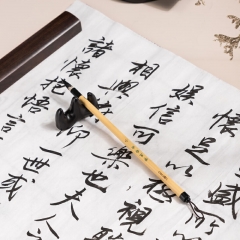 懷足以極視
娛信可樂也夫人之
相與仰一世或
諸懷抱悟言一